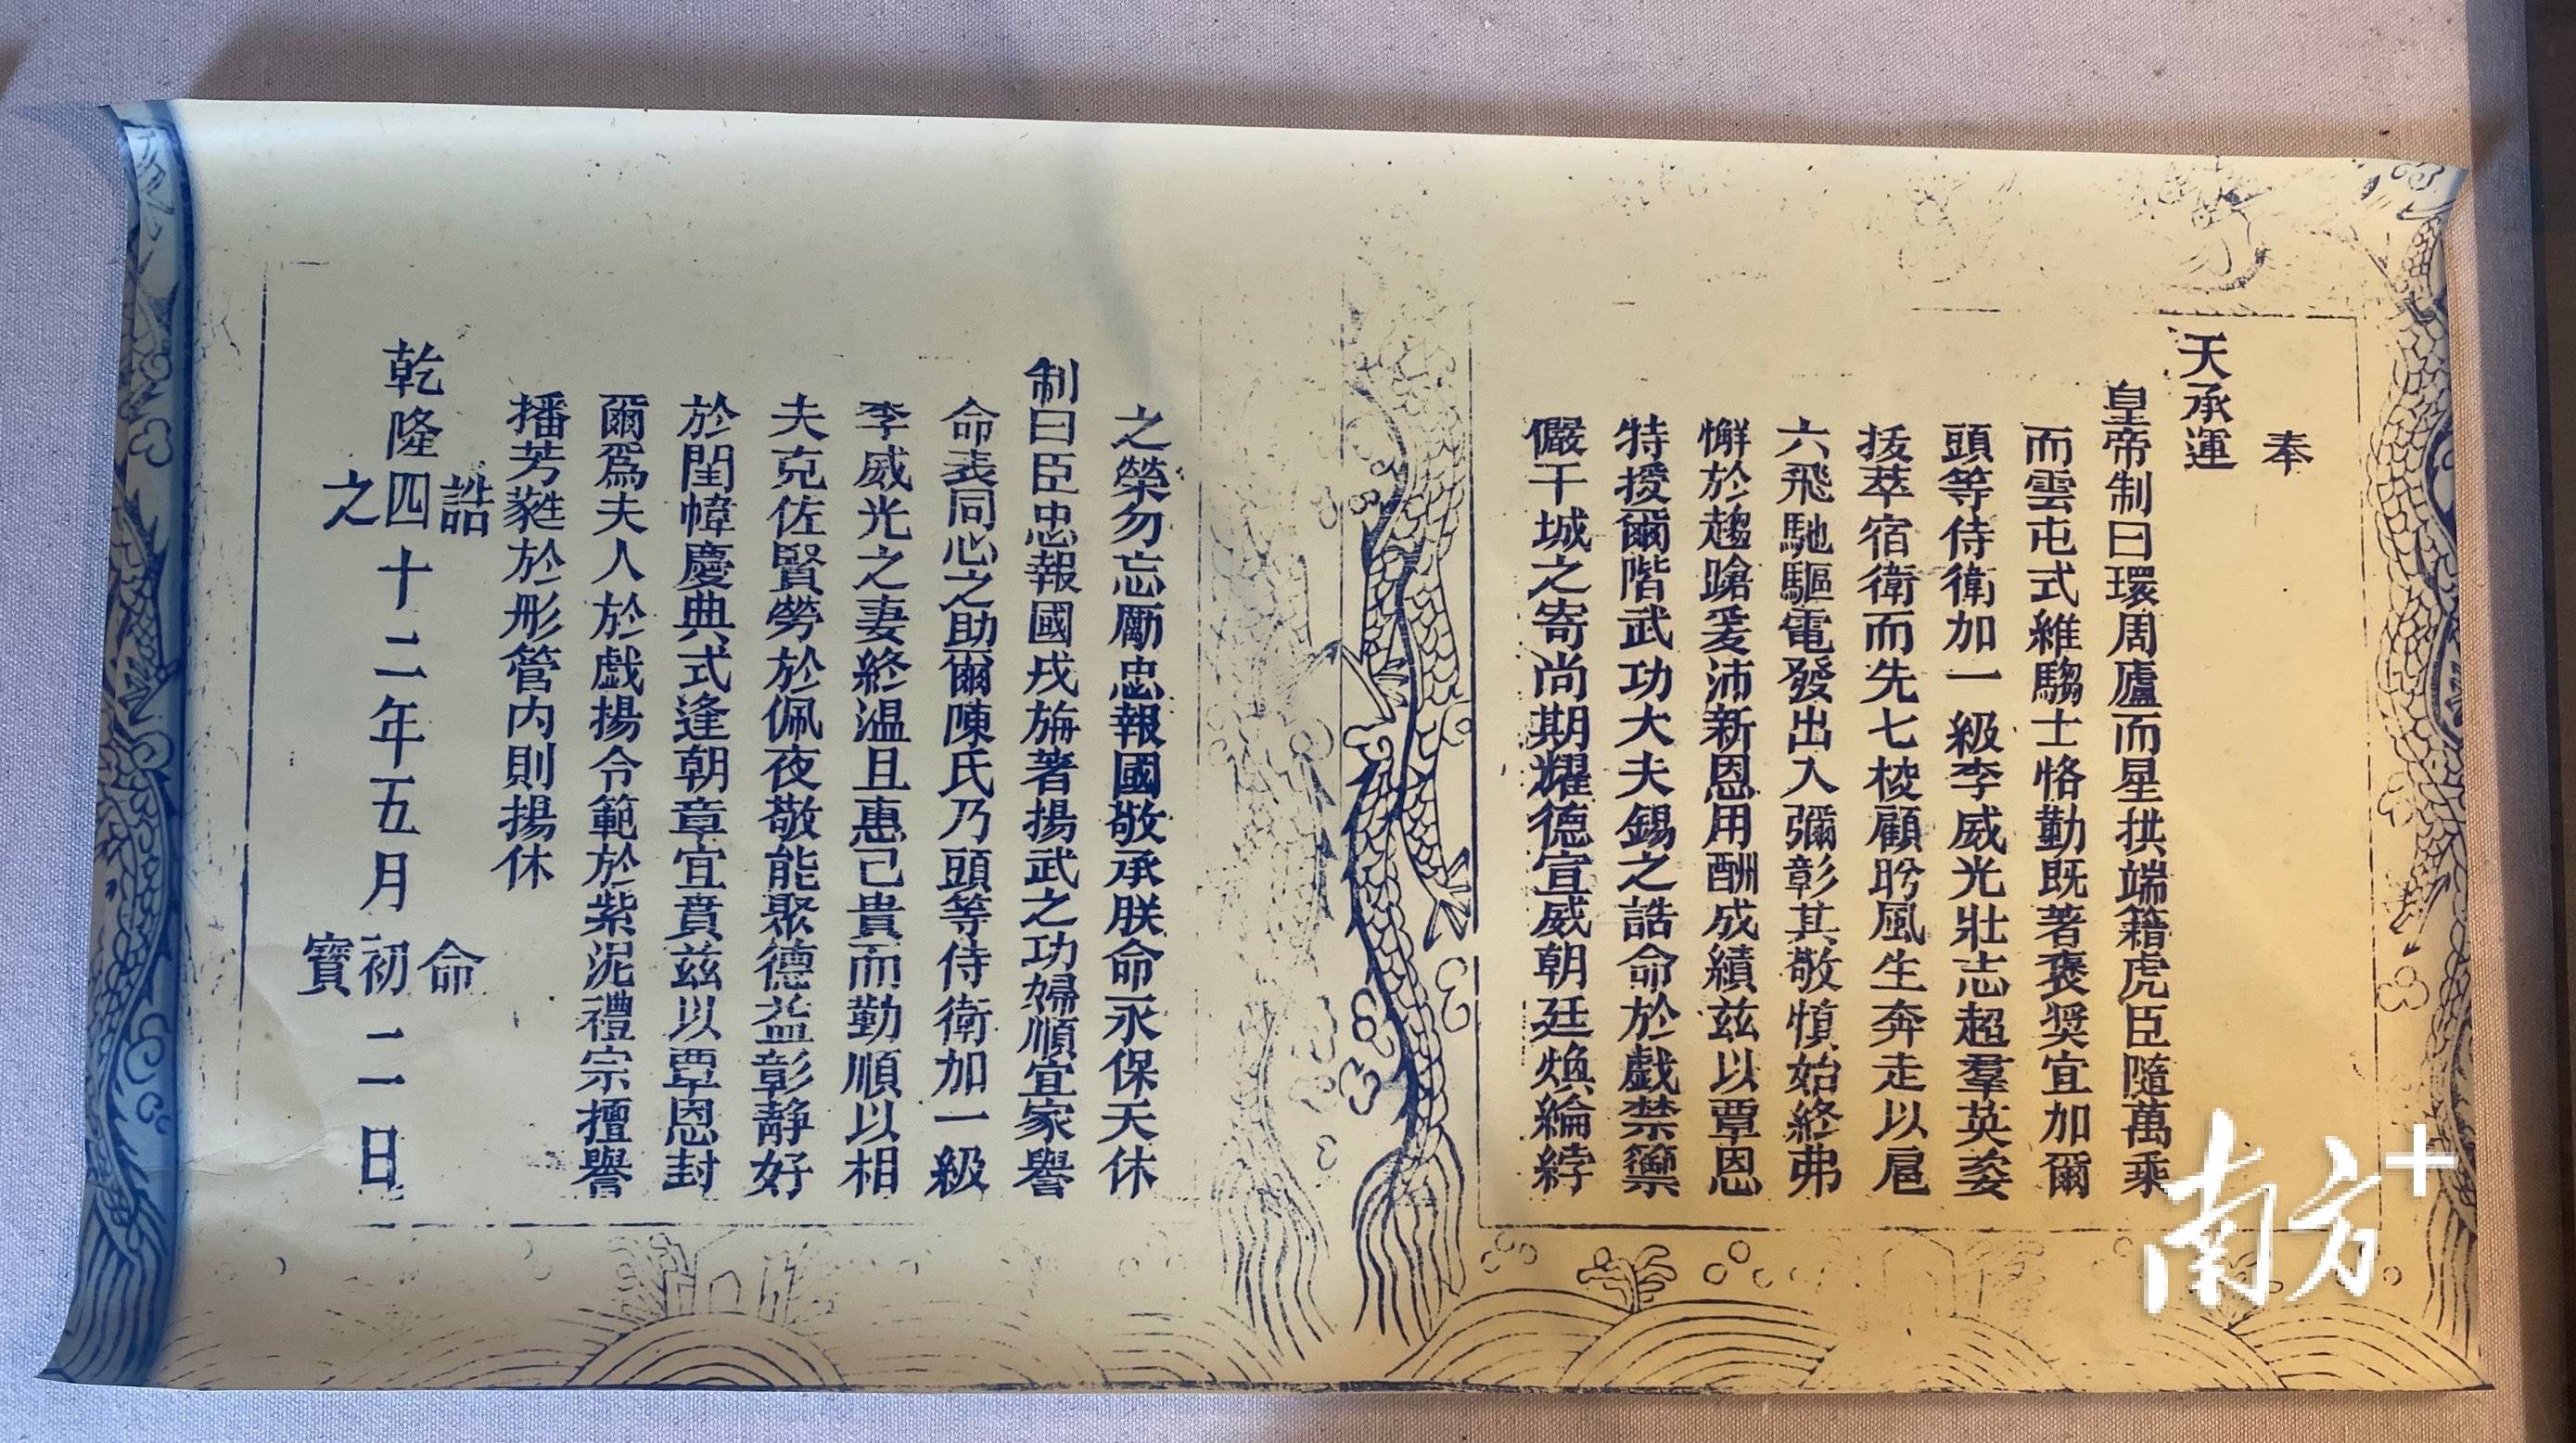 奉
天承運
皇帝制曰環周廬而星拱端籍虎臣隨萬乘
而雲屯式維騶士恪勤既著褒奨宜加爾
頭等侍衛加一級李威光壯志超羣英姿
拔萃宿衛而先七校顧盻風生奔走以扈
六飛馳驅電發出入彌彰其敬慎始終弗
懈於趨蹌爰沛新恩用酬成績兹以覃恩
特授爾階武功大夫錫之誥命於戲禁籞
儼干城之寄尚期耀德宣威朝廷煥綸綍
之榮勿忘勵忠報國敬承朕命永保天休
制曰臣忠報國戎旃著揚武之功婦順宜家譽
命表同心之助爾陳氏乃頭等侍衛加一級
李威光之妻終温且惠已貴而勤順以相
夫克佐賢勞於佩夜敬能聚德益彰靜好
於閨幃慶典式逢朝章宜賁兹以覃恩封
爾爲夫人於戲揚令範於紫泥禮宗擅譽
播芳蕤於彤管内則揚休
誥命
乾隆四十二年五月初二日
之寶
南方+